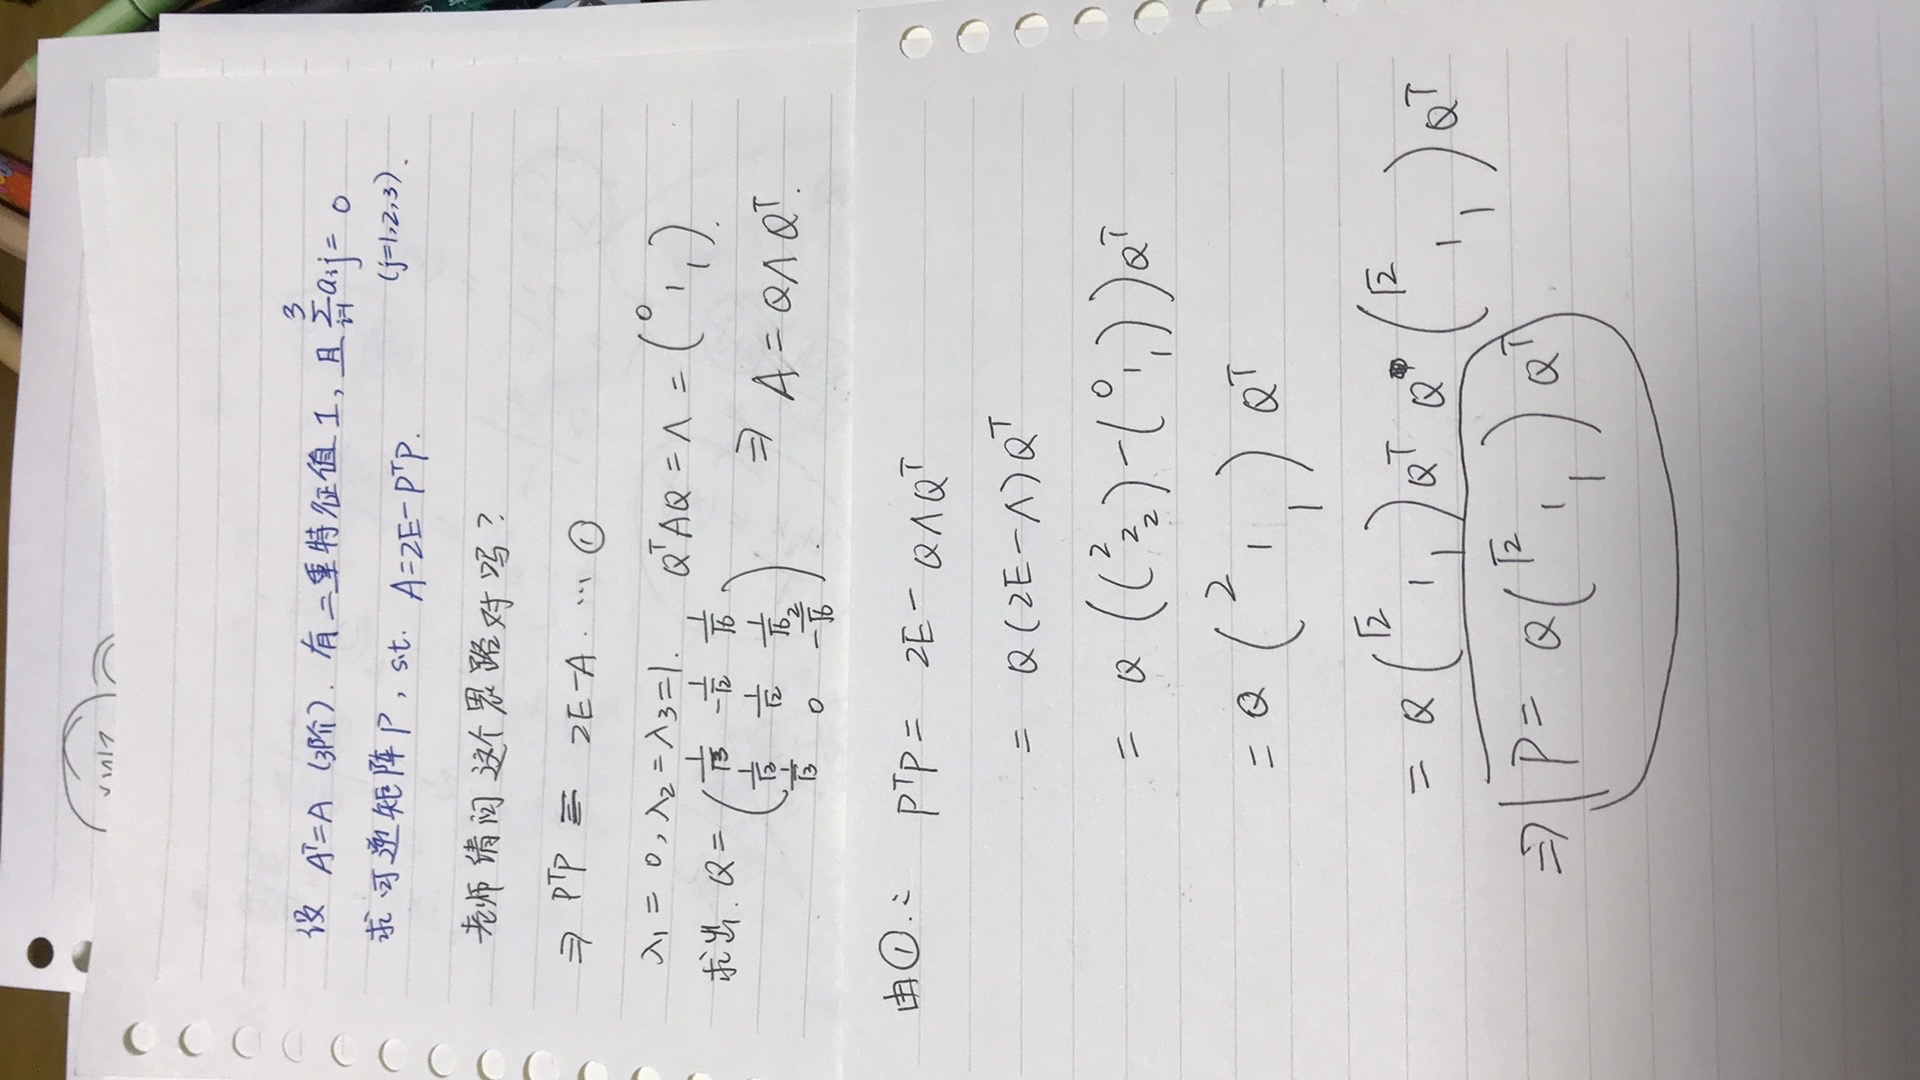 设 Aᵀ=A (3阶). 有二重特征值1, 且 \sum_{i=1}^{3} aij = 0
(j=1,2,3).
求可逆矩阵P, s.t. A=2E-PᵀP.
老师请问这个思路对吗?
⇒ PᵀP = 2E-A. ... ①
λ₁=0, λ₂=λ₃=1. QᵀAQ=Λ=(0 1 1).
求出. Q= \begin{pmatrix} \frac{1}{\sqrt{3}} & -\frac{1}{\sqrt{2}} & \frac{1}{\sqrt{6}} \\ \frac{1}{\sqrt{3}} & \frac{1}{\sqrt{2}} & \frac{1}{\sqrt{6}} \\ \frac{1}{\sqrt{3}} & 0 & -\frac{2}{\sqrt{6}} \end{pmatrix}. ⇒ A=QΛQᵀ.
由①: PᵀP = 2E-QΛQᵀ
= Q(2E-Λ)Qᵀ
= Q((2 2 2)-(0 1 1))Qᵀ
= Q(2 1 1)Qᵀ
= Q(√2 1 1)QᵀQ(√2 1 1)Qᵀ
⇒ P=Q(√2 1 1)Qᵀ